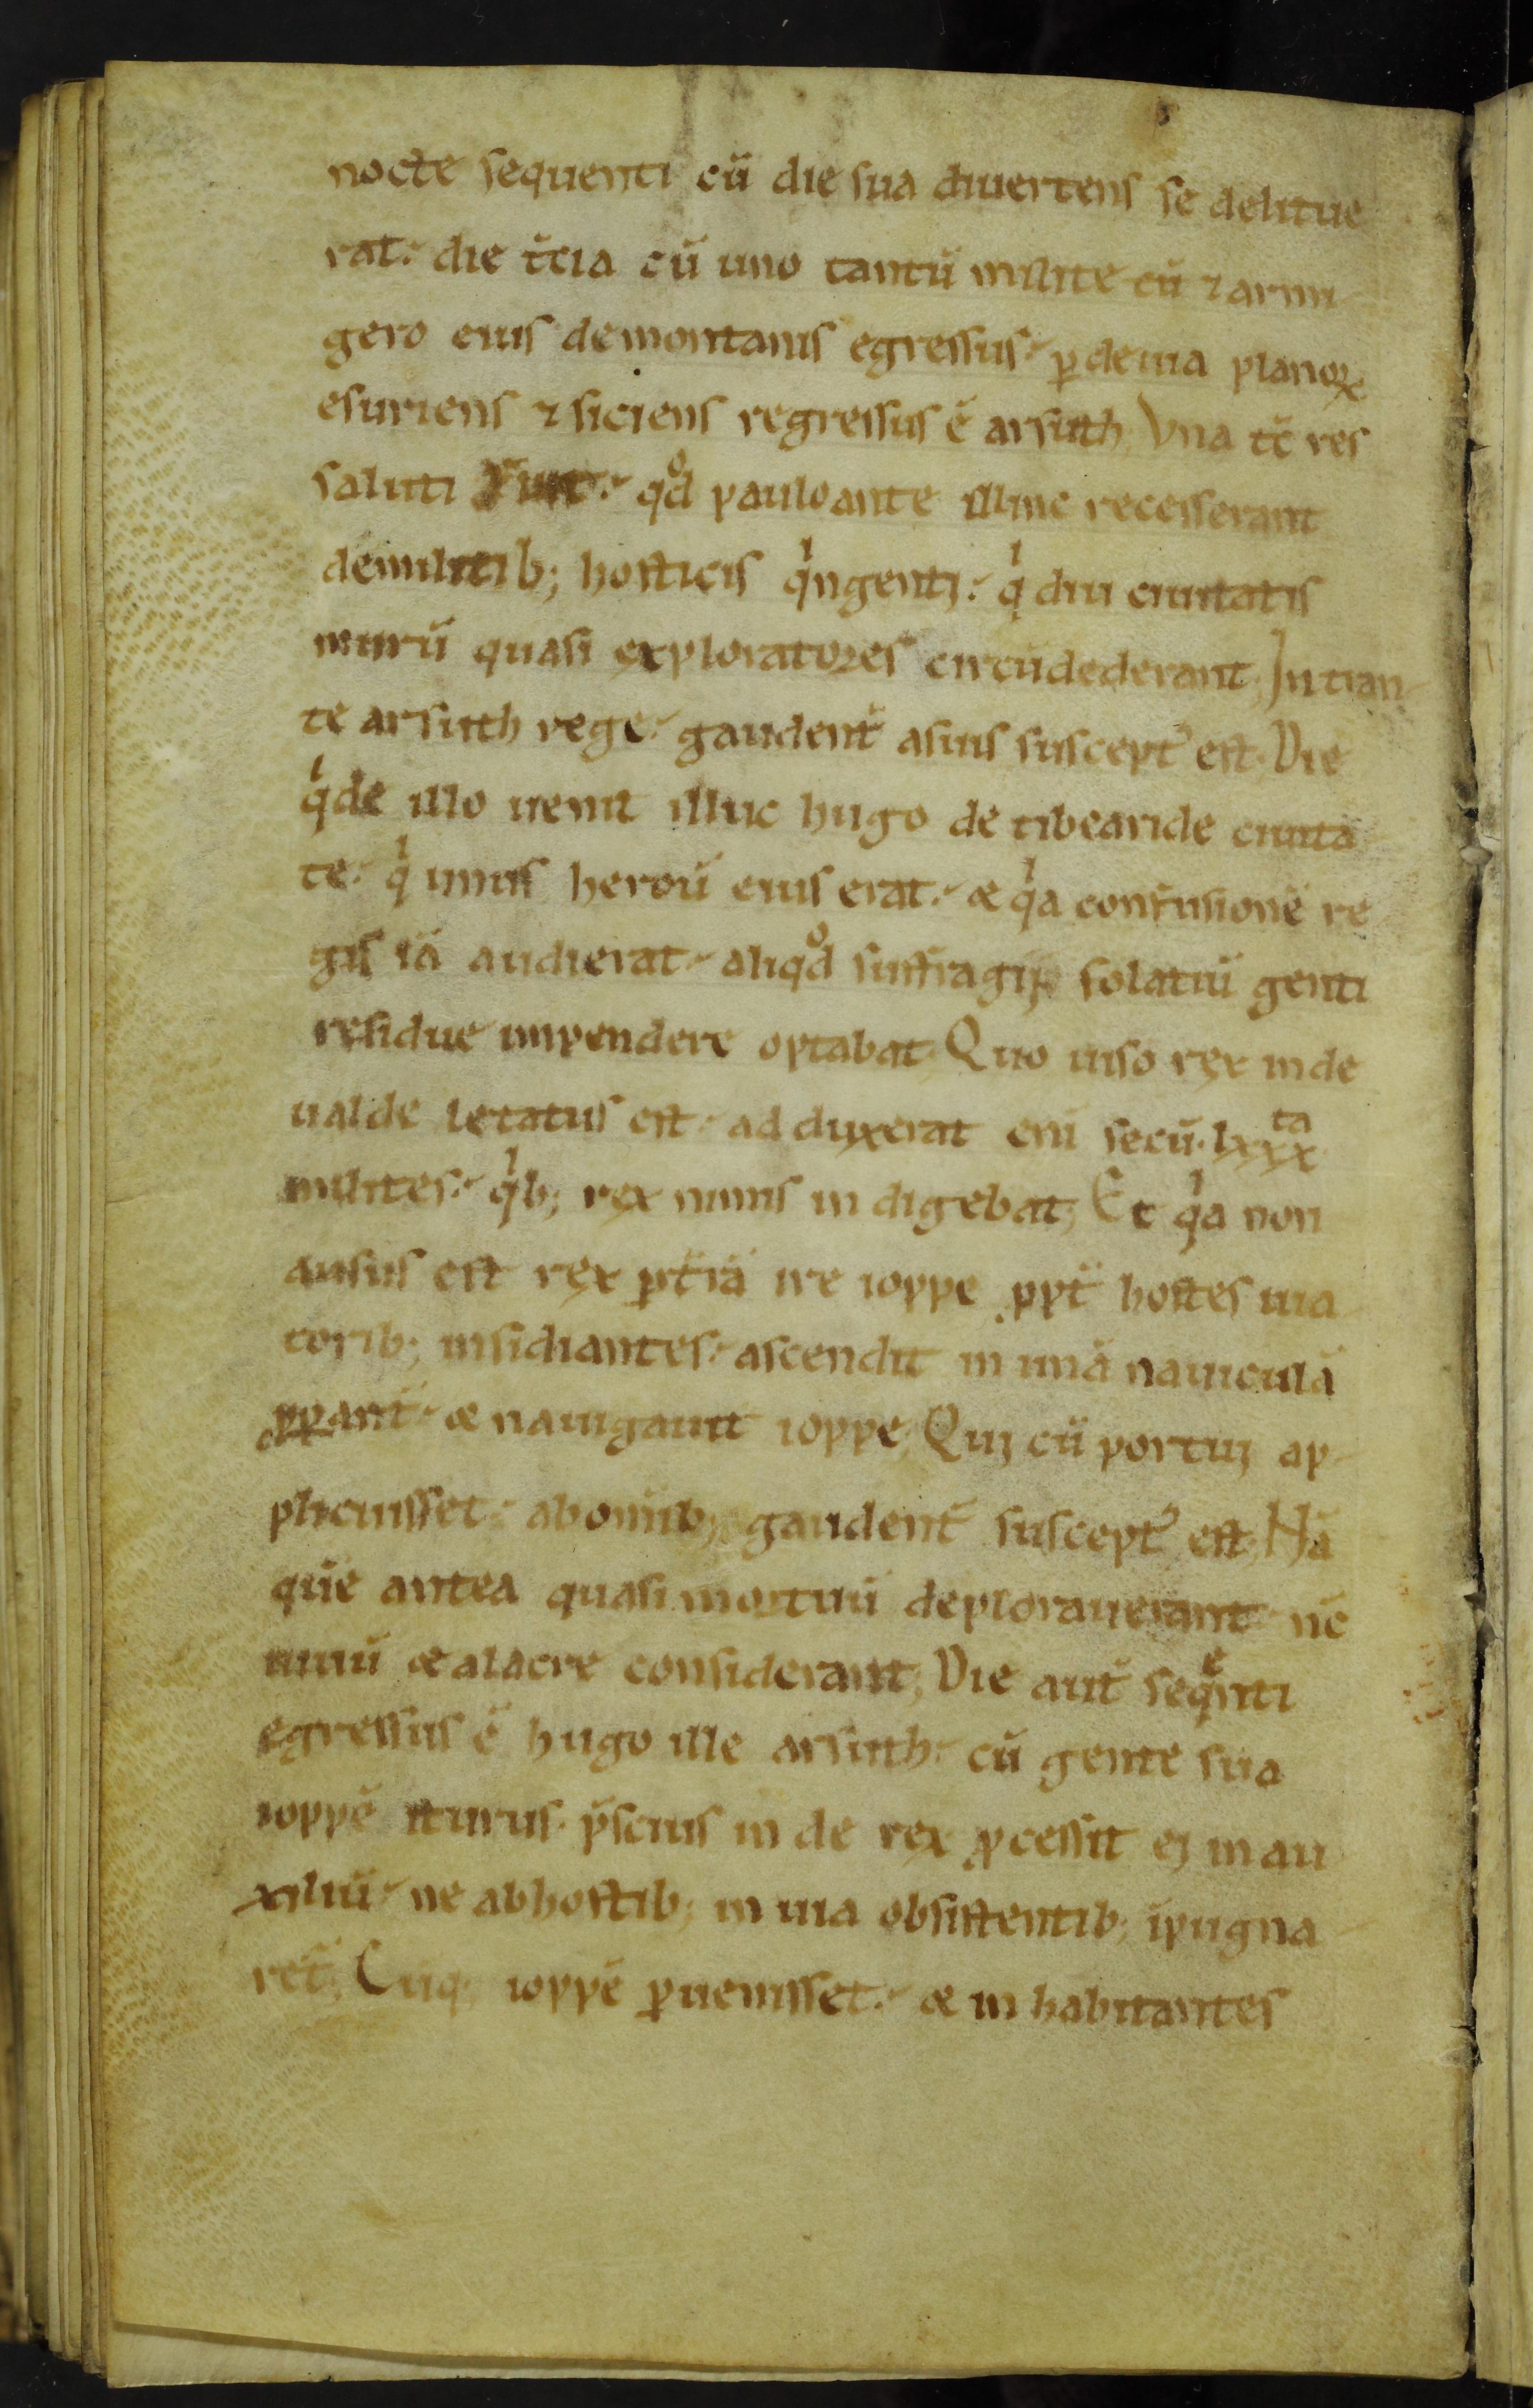 nocte sequenti cū die sua diuertens se delitue
rat. die t̄cia cū uno tantū milite cū ⁊ armi
gero eius demontanis egressus. ꝑ deuia planoꝝ
esuriens ⁊ siciens regressus ē arsuth. Vna t̄c res
saluti fuit. qͦd pauloante illinc recesserant
demilitib; hosticis qͥngenti. qͥ diu ciuitatis
murū quasi exploratores circūdederant. Intran
te arsuth rege. gaudent̄ asuis suscept᷒ est. Die
qͥde illo uenit illuc hugo de tibearide ciuita
te. qͥ unus heroū eius erat. & qͥa confusionē re
gis iā audierat. aliqͦd suffragij solatiū genti
residue impendere optabat. Quo uiso rex inde
ualde letatus est. ad duxerat eni secū. lxxxᵗᵃ
milites. qͥb; rex nimis in digebat; Et qͥa non
ausus est rex ꝑ t̄rā ire ioppe ꝓpt̄ hostes uia
torib; insidiantes. ascendit in unā nauiculā
apꝑant̄. & nauigauit ioppe. Qui cū portui ap
plicuisset. abomib; gaudent̄ suscept᷒ est. Nā
quē antea quasi mortuū deplorauerant. nc̄
uiuū & alacrē considerant; Die aut̄ seqͤnti
egressus ē hugo ille arsuth. cū gente sua
ioppē iturus. p̄scius in de rex ꝓcessit ei in au
xiliū. ne abhostib; in uia obsistentib; īpugna
ret̄. Cūq; ioppē ꝑuenisset. & in habitantes